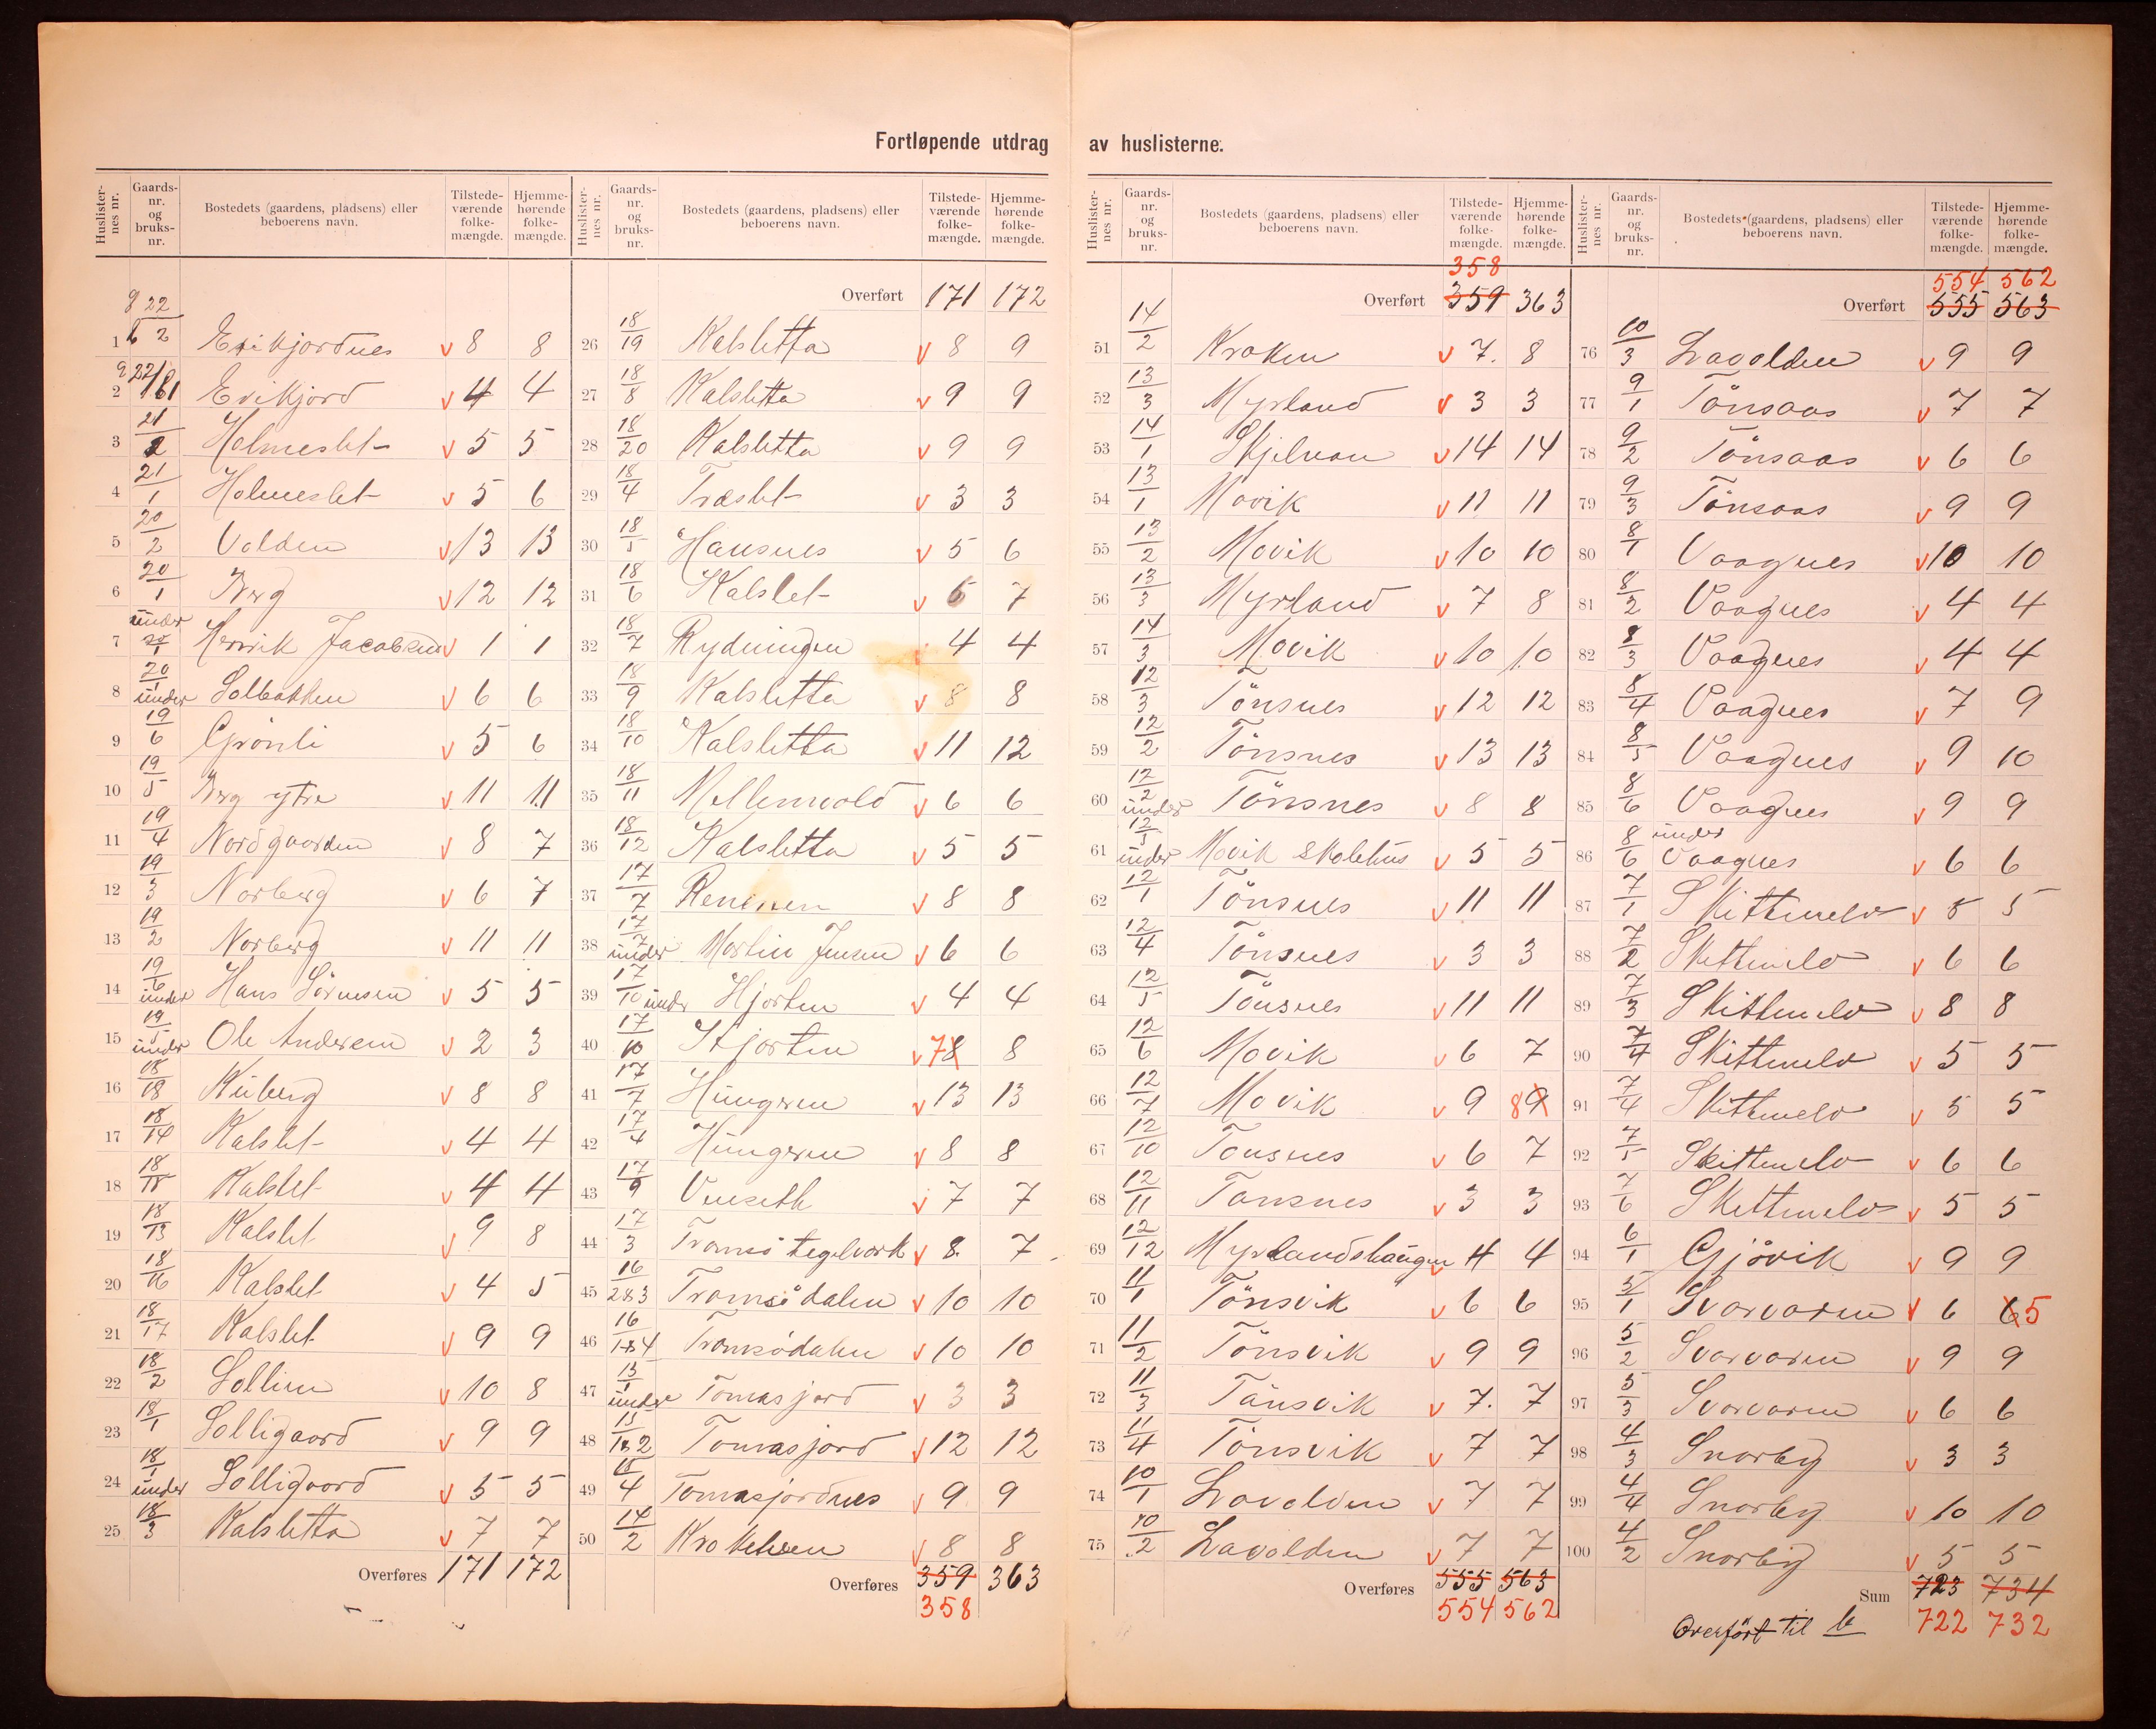 Fortløpende utdrag av huslisterne.
Huslisternes nr. Gaards-nr. og bruks-nr. Bostedets (gaardens, pladsens) eller beboerens navn. Tilstedeværende folkemængde. Hjemmehørende folkemængde.
1 Evikjordnes v 8 8
2 Evikjord v 4 4
3 21/2 Holmeslet v 5 5
4 21/1 Holmeslet v 5 6
5 20/2 Valden v 13 13
6 20/1 Berg v 12 12
7 under 20/1 Henrik Jacobsen v 1 1
8 20/1 under Solbakken v 6 6
9 19/6 Grönli v 5 6
10 19/5 Berg ytre v 11 11
11 19/4 Nordgaarden v 8 7
12 19/3 Norberg v 6 7
13 19/2 Norberg v 11 11
14 19/6 under Hans Sörensen v 5 5
15 19/5 under Ole Andersen v 2 3
16 18/18 v 8 8
17 18/14 Kalslet v 4 4
18 18/15 Kalslet v 4 4
19 18/13 Kalslet v 9 8
20 18/16 Kalslet v 4 5
21 18/17 Kalslet v 9 9
22 18/2 Sollien v 10 8
23 18/1 Solligaard v 9 9
24 18/1 under Solligaard v 5 5
25 18/3 Kalsletta v 7 7
Overføres 171 172
Huslisternes nr. Gaards-nr. og bruks-nr. Bostedets (gaardens, pladsens) eller beboerens navn. Tilstedeværende folkemængde. Hjemmehørende folkemængde.
Overført 171 172
26 18/19 Kalsletta v 8 9
27 18/8 Kalsletta v 9 9
28 18/20 Kalsletta v 9 9
29 18/4 Træslet v 3 3
30 18/5 Hansnes v 5 6
31 18/6 Kalslet v 6 7
32 18/7 Rydningen 4 4
33 18/9 Kalsletta v 8 8
34 18/10 Kalsletta v 11 12
35 18/11 Mellemvold v 6 6
36 18/12 Kalsletta v 5 5
37 17/7 v 8 8
38 17/7 under Martin Jensen v 6 6
39 17/10 under Hjorten v 4 4
40 17/10 Hjorten v 7 8 8
41 17/7 Hungeren v 13 13
42 17/4 Hungeren v 8 8
43 17/9 v 7 7
44 17/3 Tromsö teglverk v 8 7
45 16/2&3 Tromsödalen v 10 10
46 16/1&4 Tromsödalen v 10 10
47 15/1 under Tomasjord v 3 3
48 15/1&2 Tomasjord v 12 12
49 15/4 Tomasjordnes v 9 9
50 14/2 v 8 8
Overføres 359 363
358
Huslisternes nr. Gaards-nr. og bruks-nr. Bostedets (gaardens, pladsens) eller beboerens navn. Tilstedeværende folkemængde. Hjemmehørende folkemængde.
358
Overført 359 363
51 14/2 Kroken v 7. 8
52 13/3 Myrland v 3 3
53 14/1 Skjelnan v 14 14
54 13/1 Movik v 11 11
55 13/2 Movik v 10 10
56 13/3 Myrland v 7 8
57 14/3 Movik v 10 10
58 12/3 Tönsnes v 12 12
59 12/2 Tönsnes v 13 13
60 12/2 under Tönsnes v 8 8
61 12/5 under Movik skolehus v 5 5
62 12/1 Tönsnes v 11 11
63 12/4 Tönsnes v 3 3
64 12/5 Tönsnes v 11 11
65 12/6 Movik v 6 7
66 12/7 Movik v 9 8 9
67 12/10 Tonsnes v 6 7
68 12/11 Tonsnes v 3 3
69 12/12 Myrlandshaugen v 4 4
70 11/1 Tönsvik v 6 6
71 11/2 Tönsvik v 9 9
72 11/3 Tönsvik v 7. 7
73 11/4 Tönsvik v 7 7
74 10/1 Lavolden v 7 7
75 10/2 Lavolden v 7 7
Overføres 555 563
554 562
Huslisternes nr. Gaards-nr. og bruks-nr. Bostedets (gaardens, pladsens) eller beboerens navn. Tilstedeværende folkemængde. Hjemmehørende folkemængde.
554 562
Overført 555 563
76 10/3 Lavolden v 9 9
77 9/1 Tönsaas v 7 7
78 9/2 Tönsaas v 6 6
79 9/3 Tönsaas v 9 9
80 8/1 Vaagnes v 10 10
81 8/2 Vaagnes v 4 4
82 8/3 Vaagnes v 4 4
83 8/4 Vaagnes v 7 9
84 8/5 Vaagnes v 9 10
85 8/6 Vaagnes v 9 9
86 8/6 under Vaagnes v 6 6
87 7/1 Skittenelv v 5 5
88 7/2 Skittenelv v 6 6
89 7/3 Skittenelv v 8 8
90 7/4 Skittenelv v 5 5
91 7/4 Skittenelv v 5 5
92 7/5 Skittenelv v 6 6
93 7/6 Skittenelv v 5 5
94 6/1 Gjövik v 9 9
95 5/1 Svarvaren v 6 6 5
96 5/2 Svarvaren v 9 9
97 5/3 Svarvaren v 6 6
98 4/3 Snarby v 3 3
99 4/4 Snarby v 10 10
100 4/2 Snarby v 5 5
Sum 723 734
Overfört til b 722 732